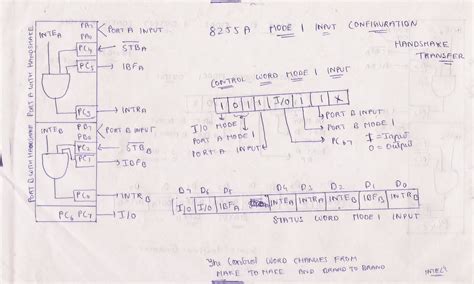 8255A MODE 1 INPUT CONFIGURATION
HANDSHAKE
TRANSFER
PORT A WITH HANDSHAKE
INTEA
PA7
PA0
PORT A INPUT
PC4
STBA
PC5
IBFA
PC3
INTRA
PORT B WITH HANDSHAKE
INTEB
PB7
PB0
PORT B INPUT
PC2
STBB
PC1
IBFB
PC0
INTRB
PC6 PC7
I/O
CONTROL WORD MODE 1 INPUT
1 0 1 1 I/O 1 1 X
I/O MODE
PORT A MODE 1
PORT A INPUT
PORT B INPUT
PORT B MODE 1
PC6,7
1 = Input
0 = Output
D7 D6 D5 D4 D3 D2 D1 D0
I/O I/O IBFA INTEA INTRA INTEB IBFB INTRB
STATUS WORD MODE 1 INPUT
The CONTROL WORD CHANGES FROM
MAKE TO MAKE AND BRAND TO BRAND.
INTEL